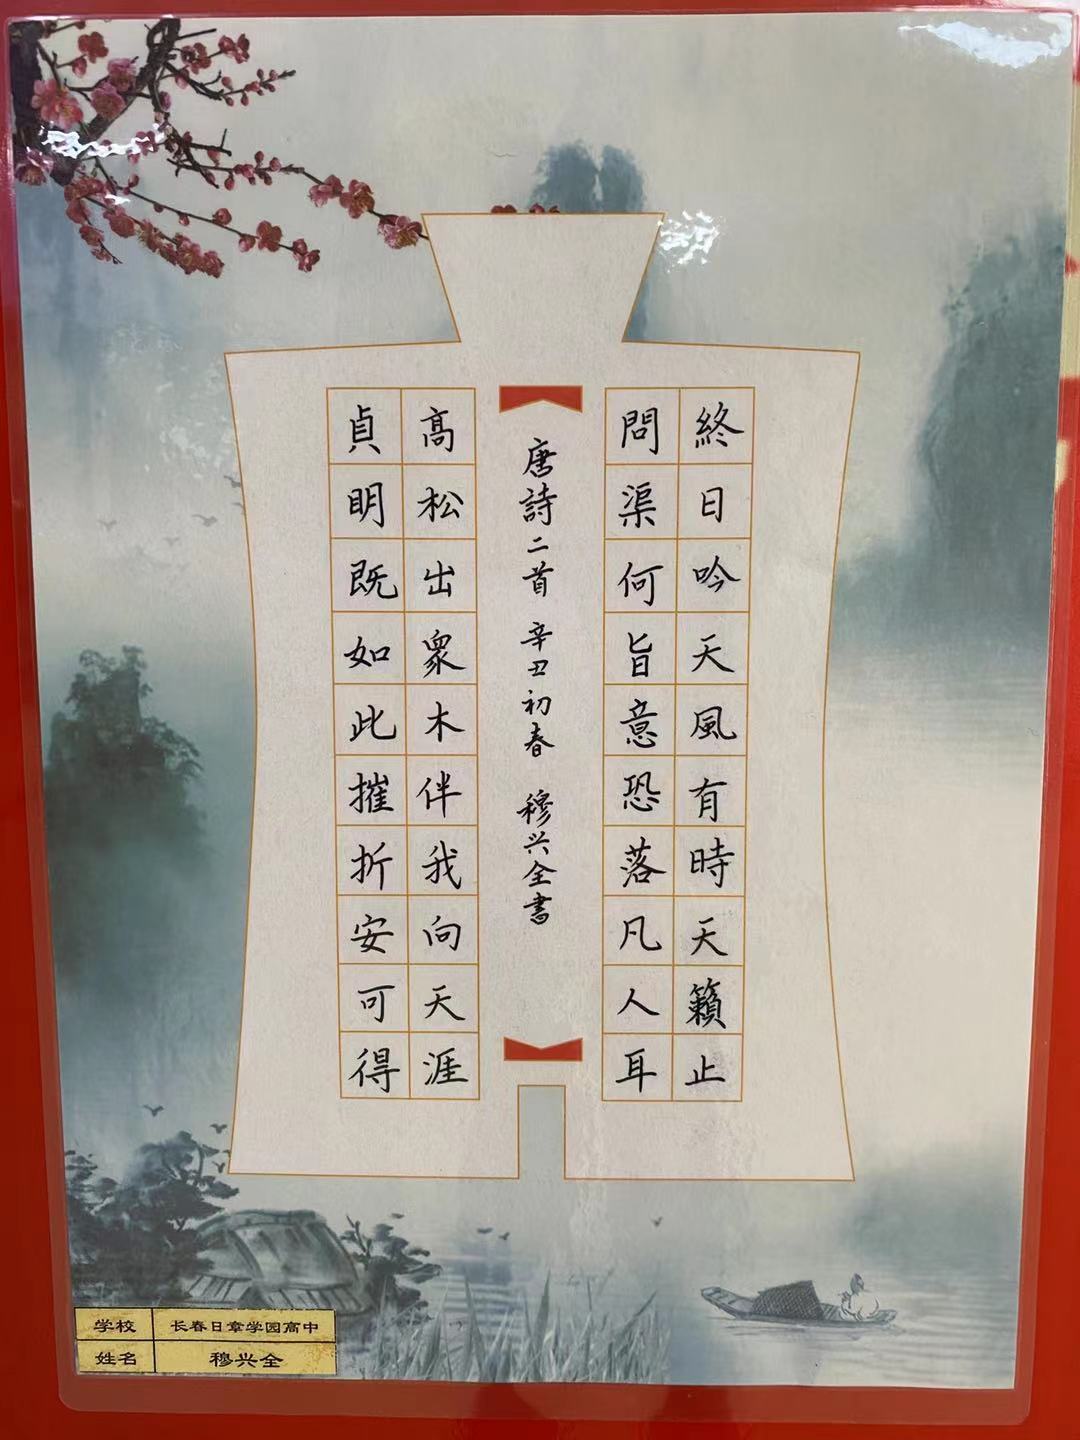 終日吟天風有時天籟止
問渠何旨意恐落凡人耳
唐詩二首 辛丑初春 穆兴全書
高松出衆木伴我向天涯
貞明既如此摧折安可得
学校 长春日章学园高中
姓名 穆兴全